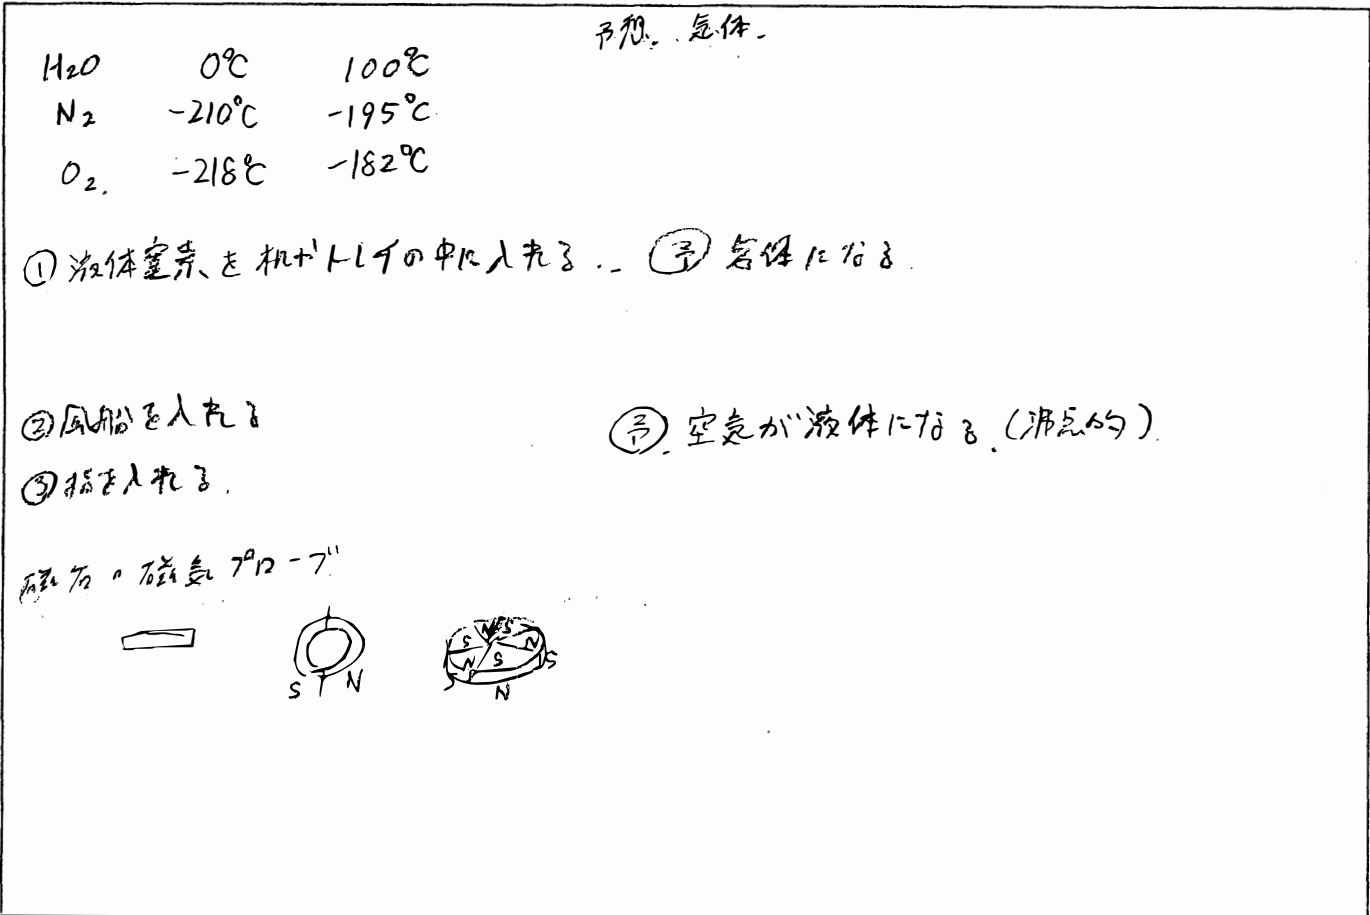 予想. 気体.
H2O 0℃ 100℃
N2 -210℃ -195℃
O2. -218℃ -182℃
①液体窒素を机やトレイの中に入れる. 予 気体になる.
②風船を入れる 予. 空気が液体になる.(沸点的).
③指を入れる.
磁石の磁気プローブ
S N
S N S N S N S
S N